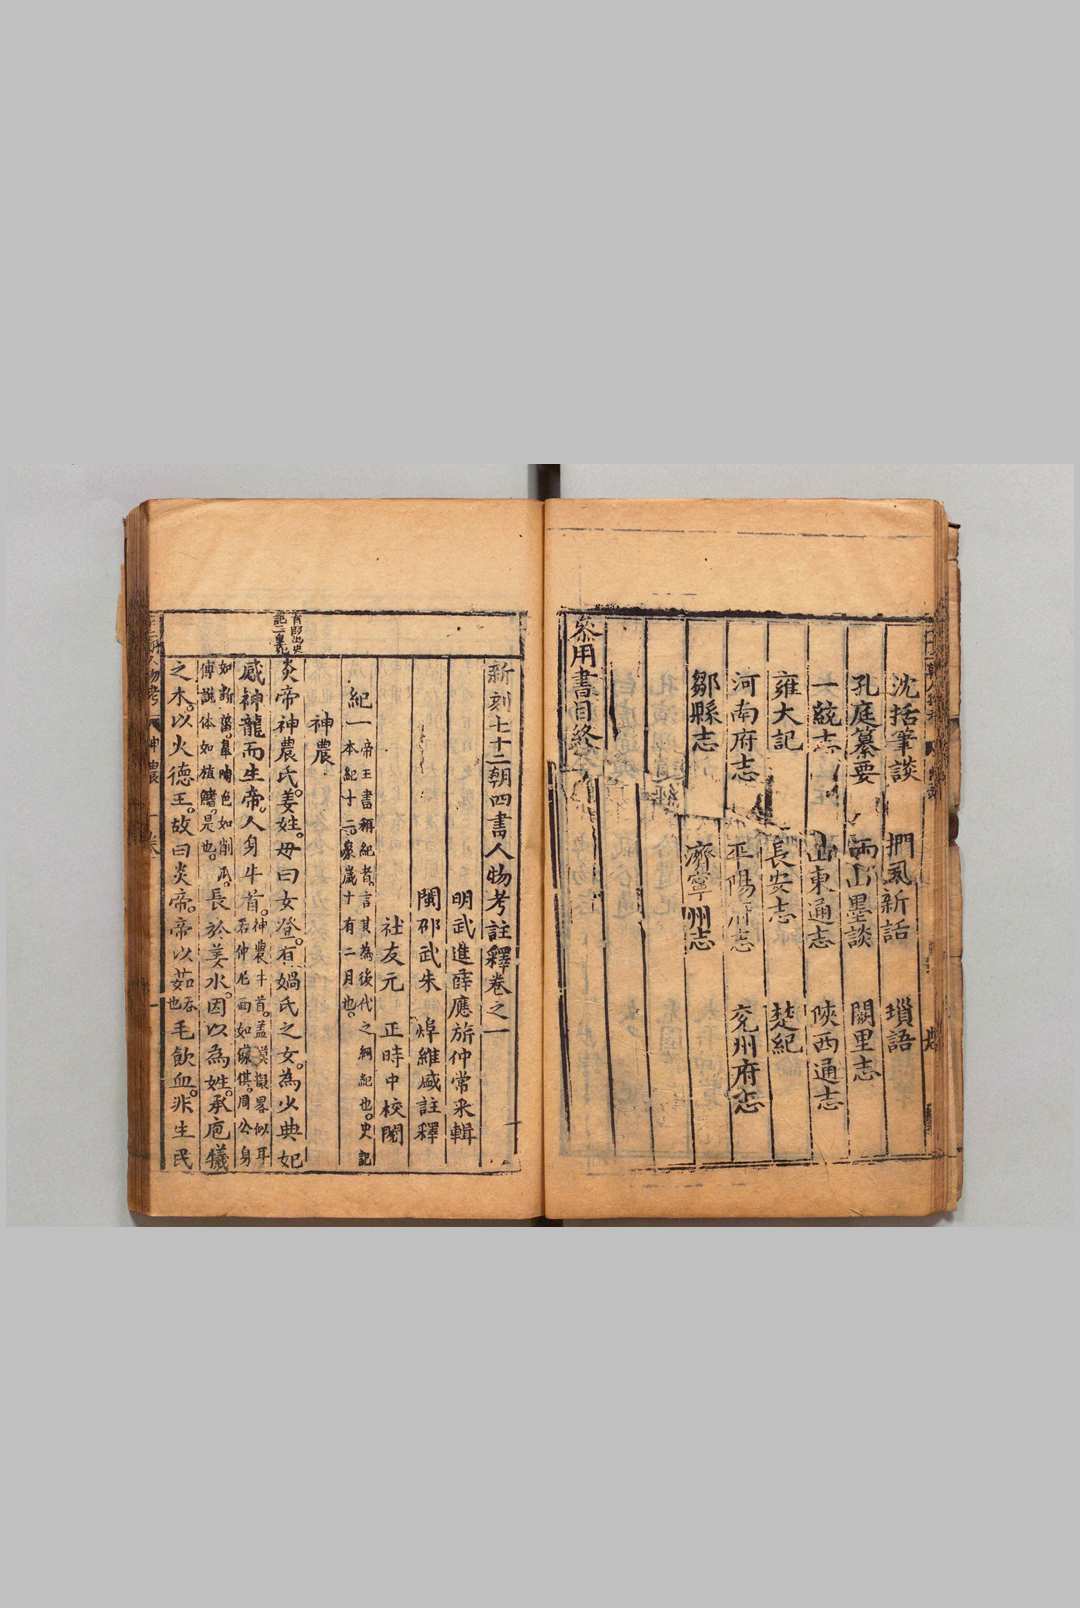 沈括筆談　捫虱新話　瑣語
孔庭纂要　兩山墨談　闕里志
一統志　山東通志　陝西通志
雍大記　長安志　楚紀
河南府志　平陽府志　兗州府志
鄒縣志　濟寧州志
叅用書目終
新刻七十二朝四書人物考註釋卷之一
明武進薛應旂仲常采輯
閩邵武朱　焯維盛註釋
社友元　正時中校閱
紀一帝王書稱紀者。言其為後代之綱紀也。史記
本紀十二。象歲十有二月也。
神農
炎帝神農氏。姜姓。母曰女登。有媧氏之女。為少典妃
感神龍而生帝。人身牛首。神農牛首。蓋模擬畧似耳
若仲尼面如蒙倛。周公身
如斷菑。皐陶色如削瓜。
傅說体如植鰭。是也。長於姜水。因以為姓。承庖犧
之木。以火德王。故曰炎帝。帝以茹
也毛飲血。非生民